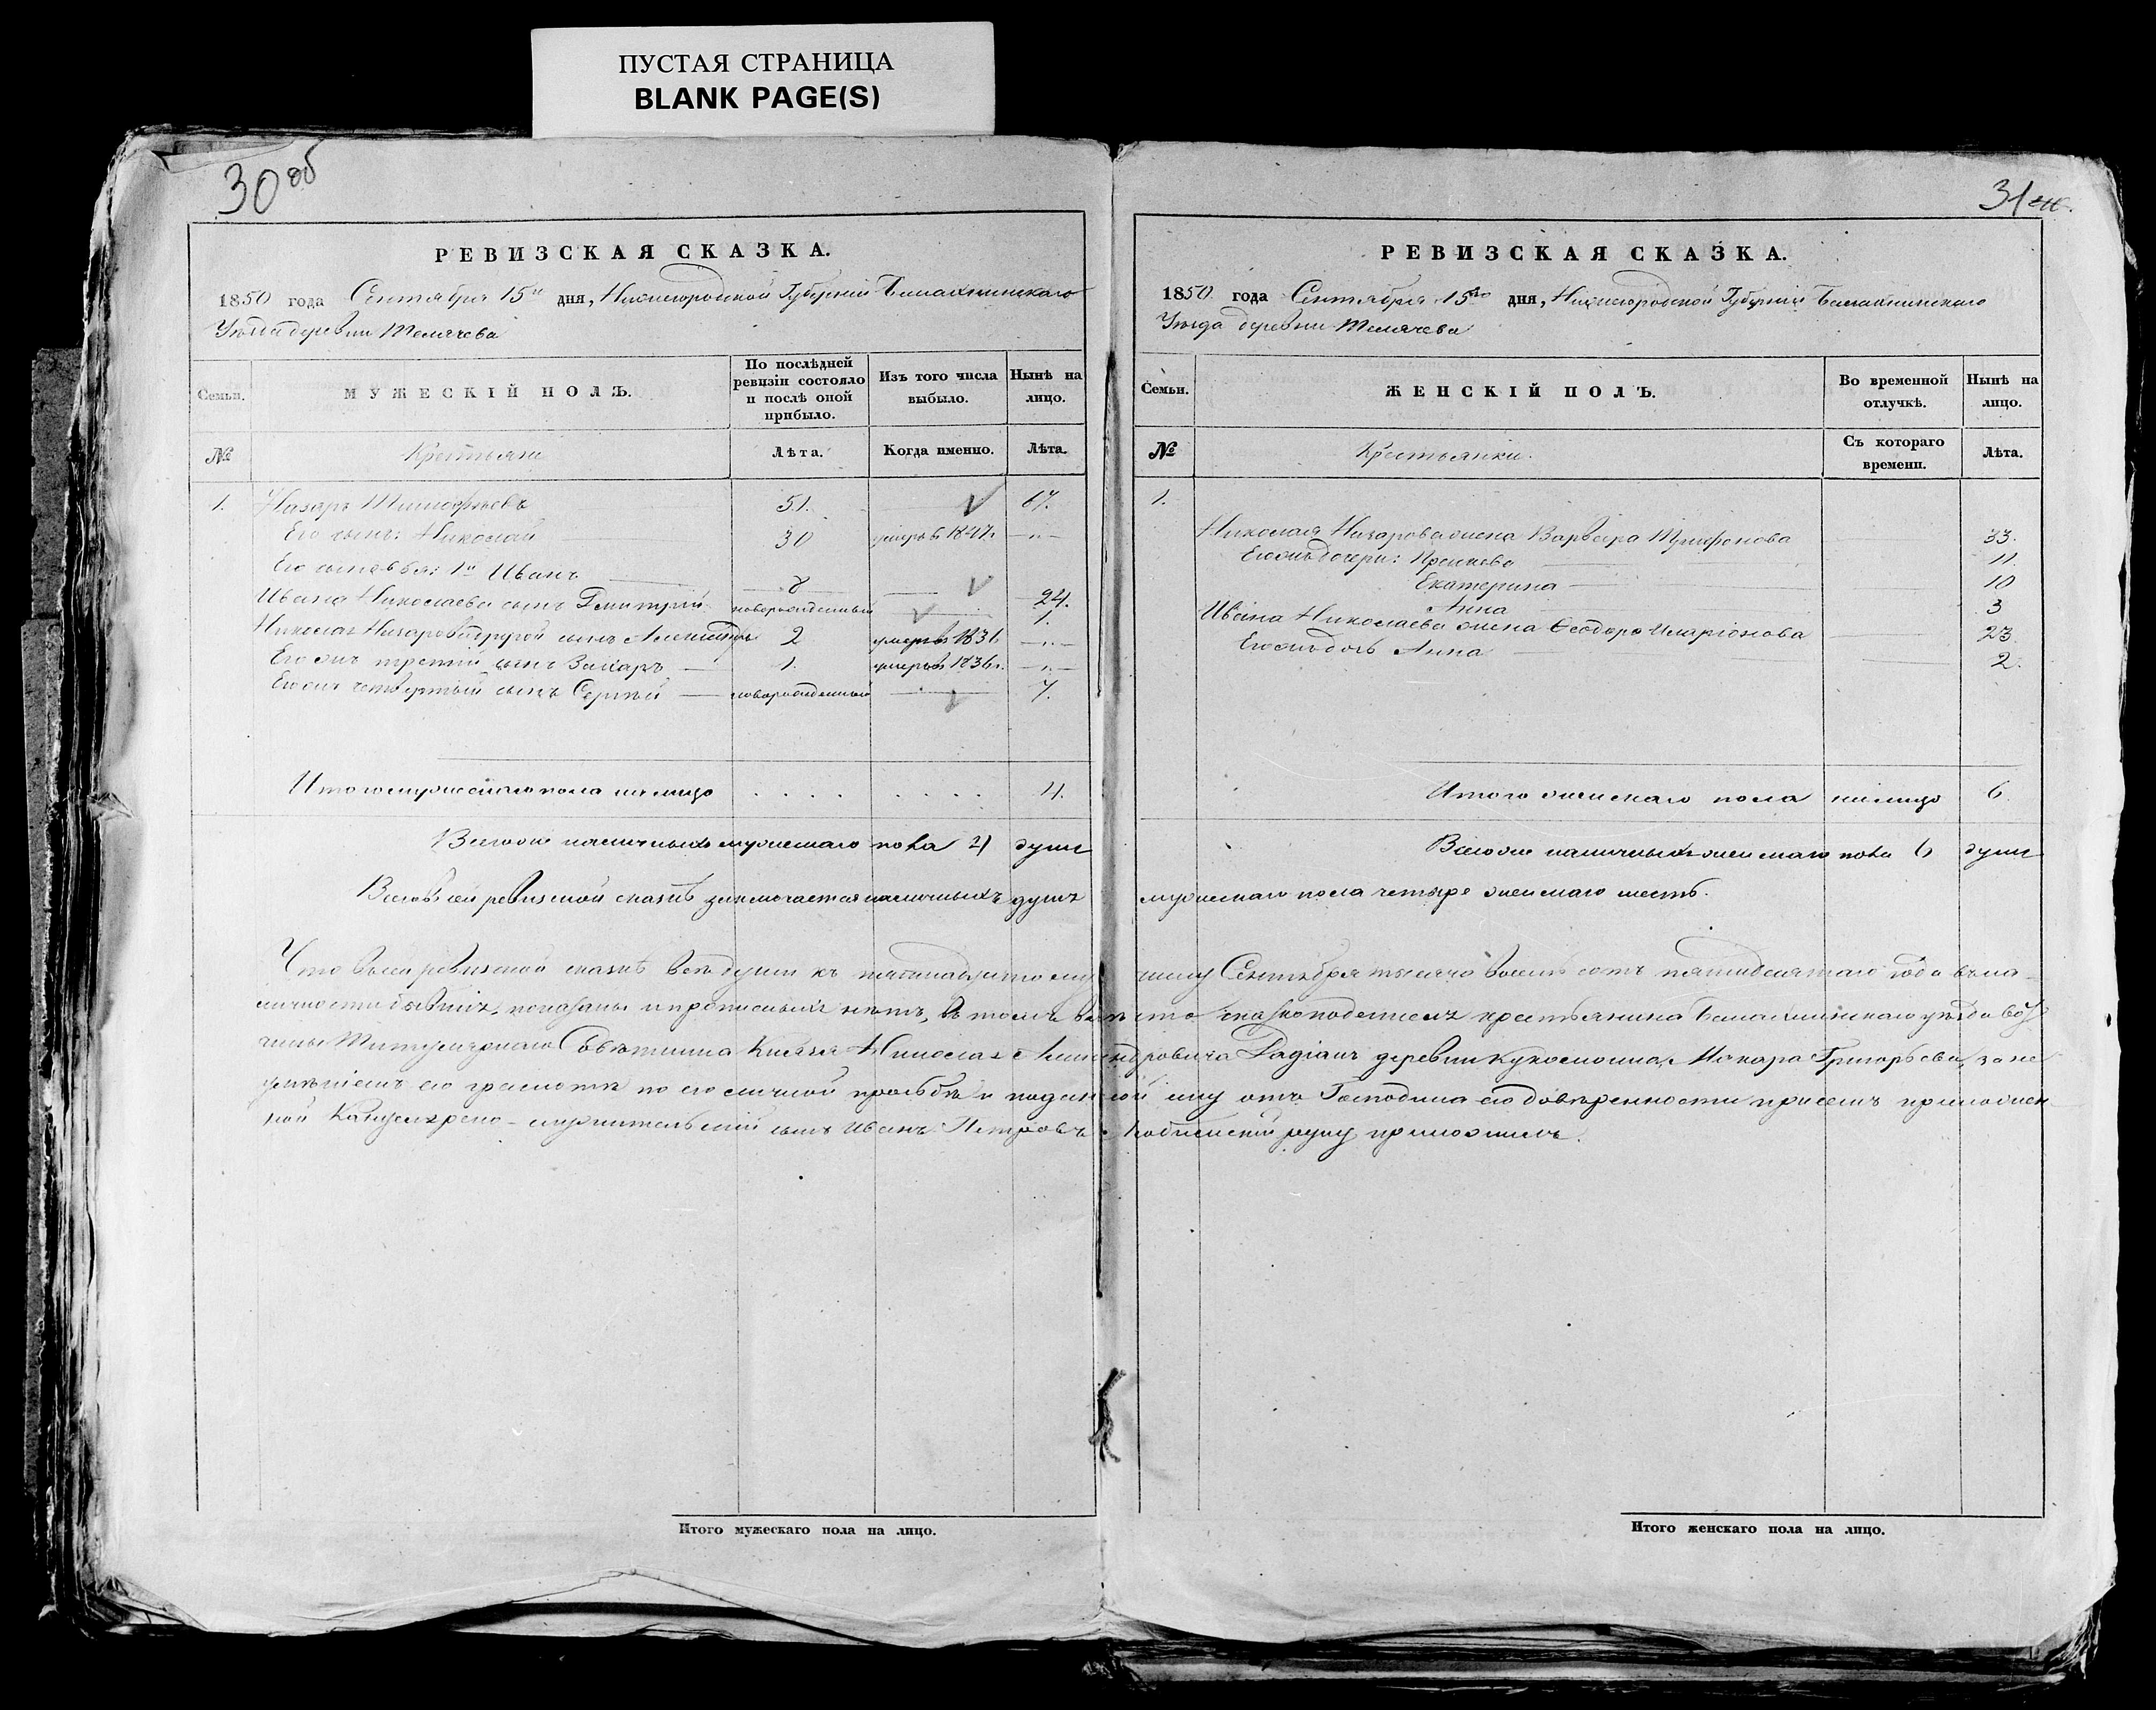 ПУСТАЯ СТРАНИЦА
BLANK PAGE(S)
30 об
РЕВИЗСКАЯ СКАЗКА.
1850 года Сентября 15го дня, Нижегородской Губерніи Балахнинскаго
Уѣзда деревни Телячева
Семьи.
МУЖЕСКІЙ ПОЛЪ.
По послѣдней ревизіи состояло и послѣ оной прибыло.
Изъ того числа выбыло.
Нынѣ на лицо.
№
Крестьяне
Лѣта.
Когда именно.
Лѣта.
1. Назаръ Тимофѣевъ 51. 67.
Его сынъ: Николай 30 умеръ въ 1847. —"—
Его сыновья: 1й Иванъ 8 24.
Ивана Николаева сынъ Дмитрій новорожденный 1.
Николая Назарова другой сынъ Александръ 2 умеръ въ 1831 —"—
Его же третій сынъ Захаръ 1. умеръ въ 1836г. —"—
Его же четвертый сынъ Сергѣй новорожденный 7.
Итого мужескаго пола на лицо . . . . . . . . 4.
Всего же наличныхъ мужескаго пола 4 душъ
31
РЕВИЗСКАЯ СКАЗКА.
1850 года Сентября 15го дня, Нижегородской Губерніи Балахнинскаго
Уѣзда деревни Телячева
Семьи.
ЖЕНСКІЙ ПОЛЪ.
Во временной отлучкѣ.
Нынѣ на лицо.
№
Крестьянки.
Съ котораго времени.
Лѣта.
1.
Николая Назарова жена Варвара 33.
Его же дочери: 11
Екатерина 10
Анна 3
Ивана Николаева жена Ѳеодора Иларіонова 23
Его же дочь Анна 2.
Итого женскаго пола на лицо 6.
Всего же наличныхъ женскаго пола 6 душъ
Всего въ сей ревизской сказкѣ заключается наличныхъ душъ мужескаго пола четыре женскаго шесть.
Что въ сей ревизской сказкѣ всѣ души къ пятнадцатому числу Сентября тысяча восемь сотъ пятидесятаго года въ на-
личности бывшіе, показаны и прописныхъ нѣтъ, въ томъ вмѣсто крестьянина Балахнинскаго уѣзда вот
чины Титулярнаго Совѣтника Князя Николая Александровича Дадіанъ деревни Макара Григорьева, за не
умѣніемъ его грамотѣ по его личной просьбѣ и поданной ему отъ Господина его довѣренности при семъ приложен-
ной Канцелярско-служительскій сынъ Иванъ Петровъ руку приложилъ.
Итого мужескаго пола на лицо.
Итого женскаго пола на лицо.